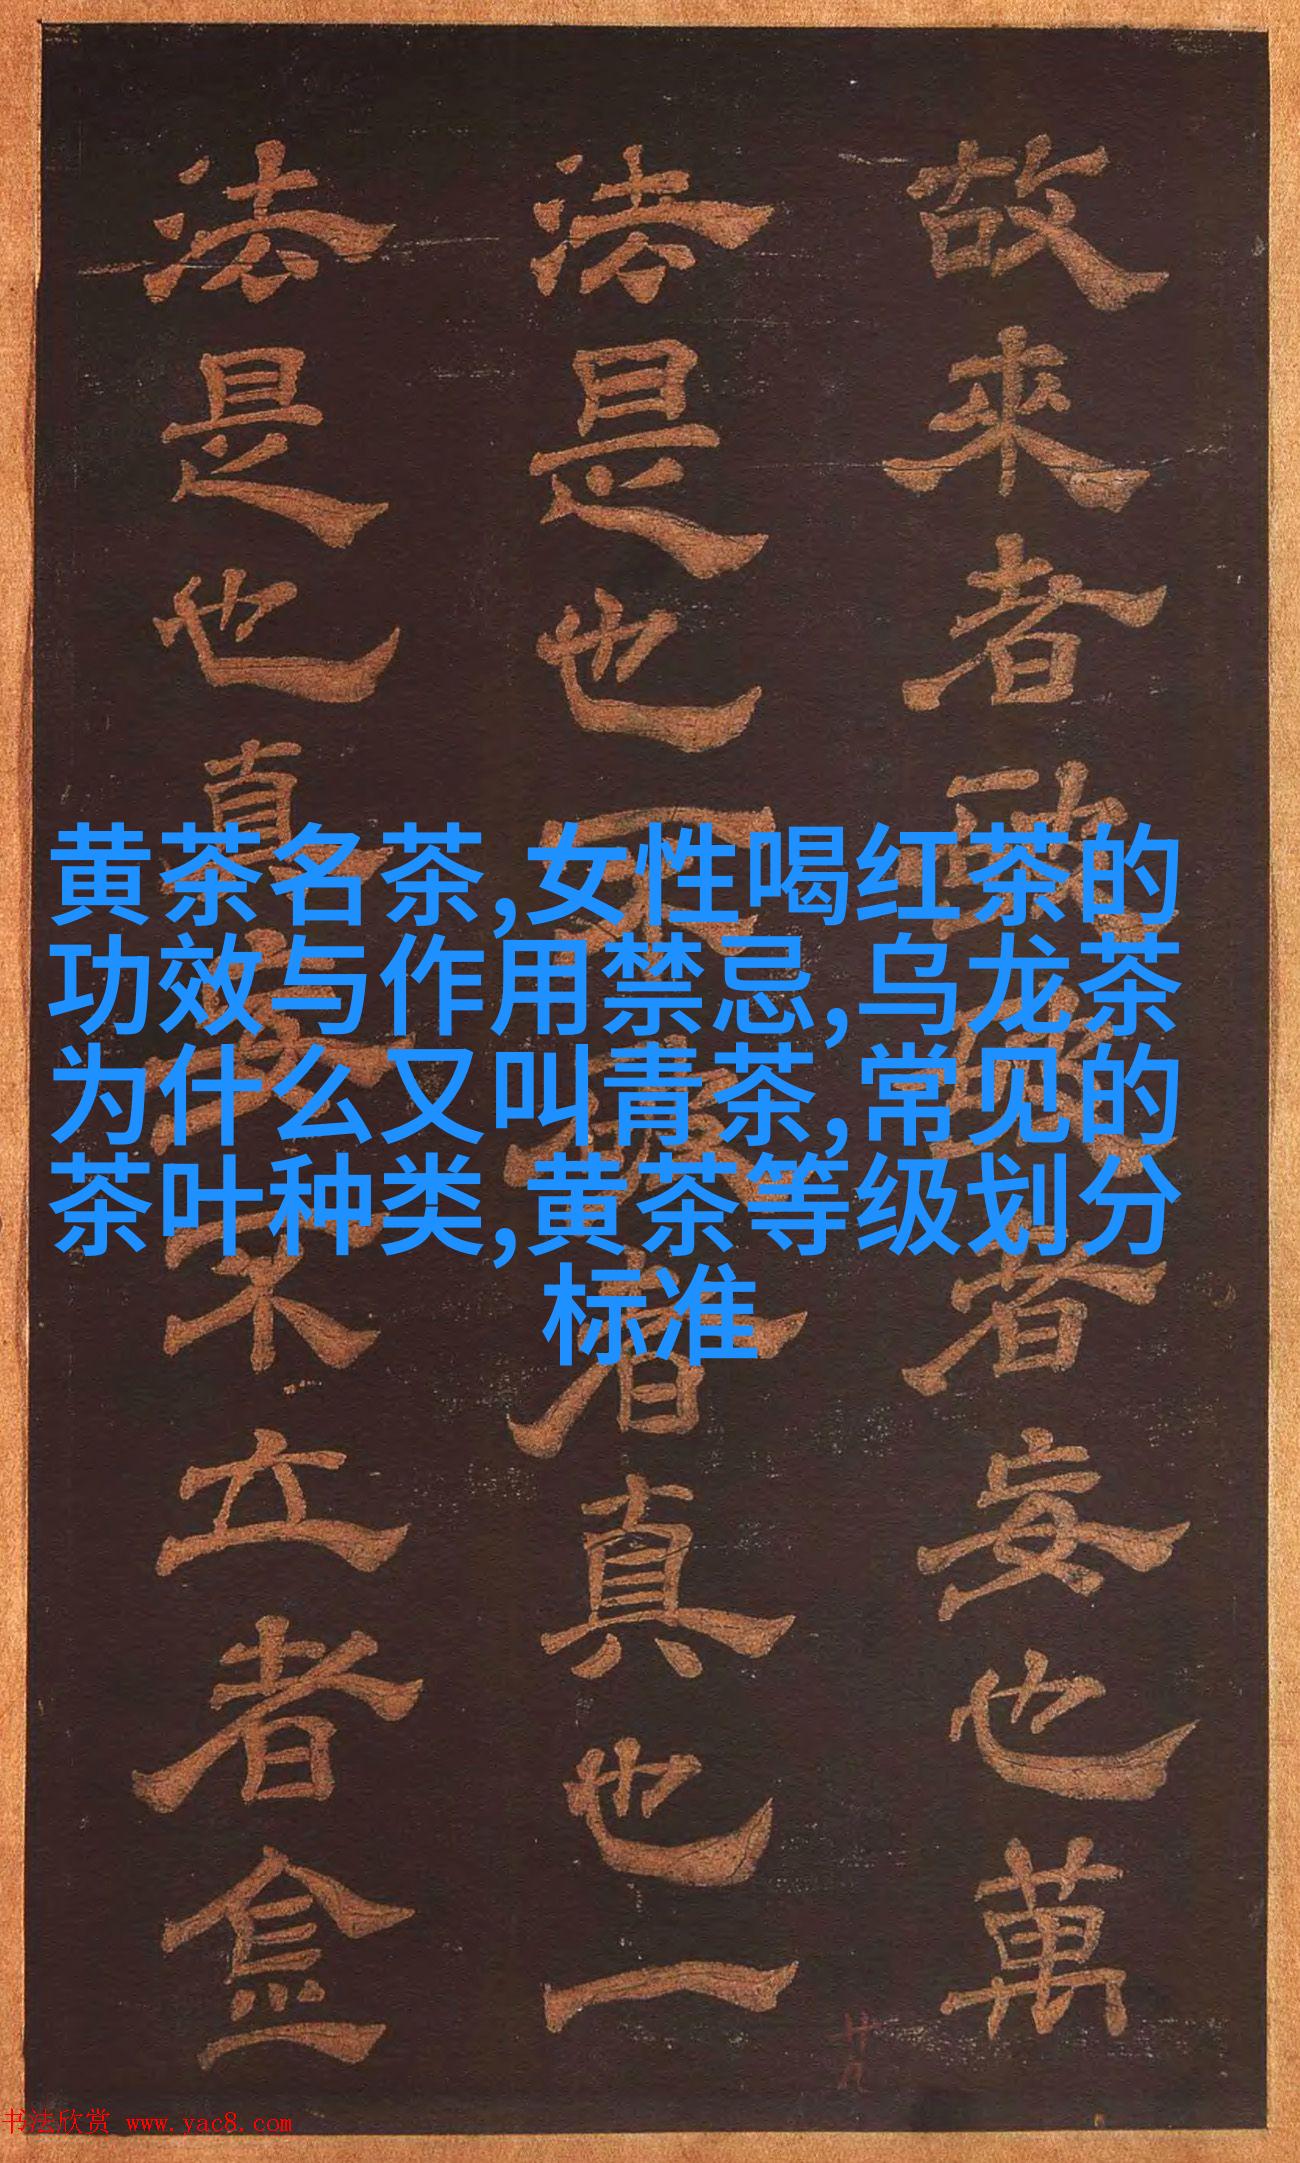 黄茶名茶,女性喝红茶的
功效与作用禁忌,乌龙茶
为什么又叫青茶,常见的
茶叶种类,黄茶等级划分
标准
故来者
者妄也萬
法是也不
者真也一
法是也真
不立者
廿九
书法欣赏 www.yac8.com